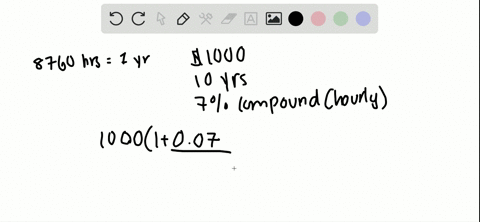 A
8760 hrs = 1 yr
$1000
10 yrs
7% compound (hourly)
1000(1+0.07